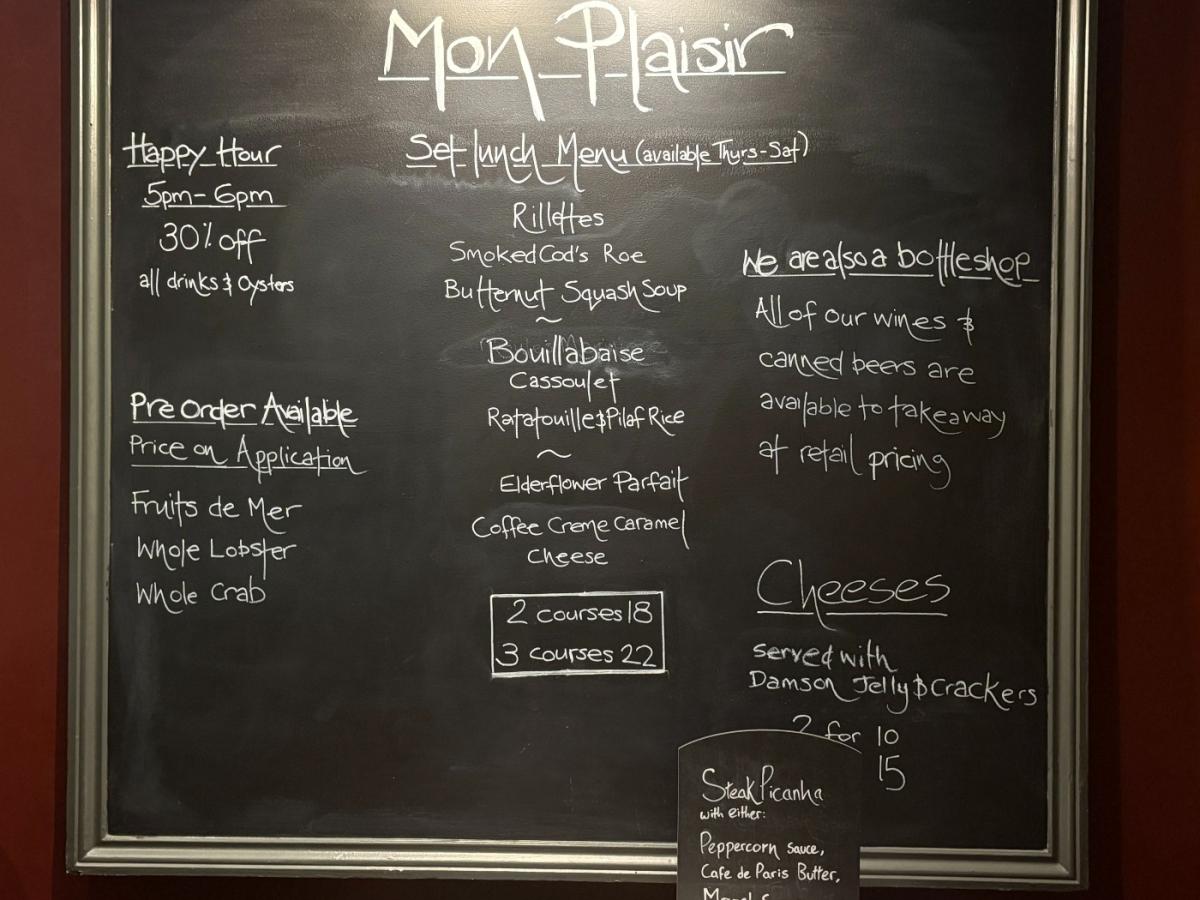 Mon Plaisir
Happy Hour
5pm - 6pm
30% off
all drinks & Oysters
Pre Order Available
Price on Application
Fruits de Mer
Whole Lobster
Whole Crab
Set lunch Menu (available Thurs - Sat)
Rillettes
Smoked Cod's Roe
Butternut Squash Soup
~
Bouillabaise
Cassoulet
Ratatouille & Pilaf Rice
~
Elderflower Parfait
Coffee Creme Caramel
Cheese
2 courses 18
3 courses 22
We are also a bottleshop
All of our wines &
canned beers are
available to takeaway
at retail pricing
Cheeses
served with
Damson Jelly & Crackers
2 for 10
15
Steak Picanha
with either:
Peppercorn sauce,
Cafe de Paris Butter,